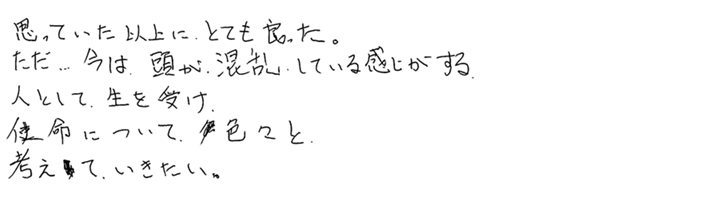 思っていた以上に、とても良った。
ただ…今は、頭が、混乱、している感じがする、
人として、生を受け、
使命について、色々と、
考えて、いきたい。